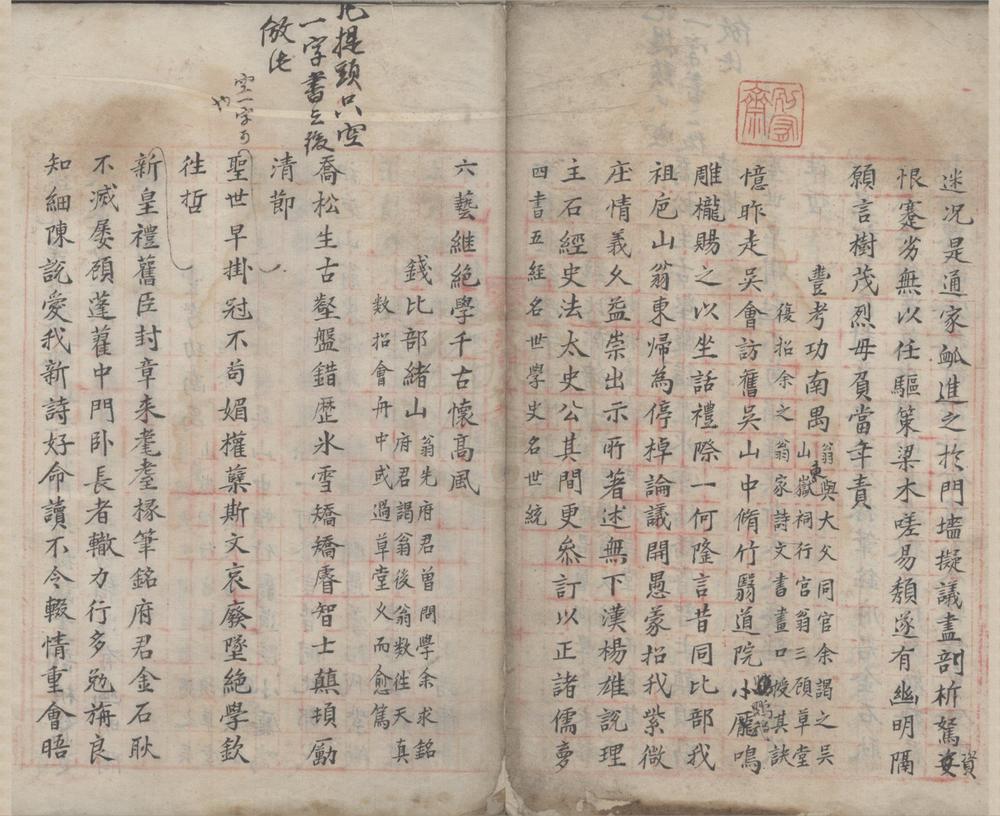 迷况是通家瓠進之扵門墻擬議盡剖析駑資
恨蹇劣無以任驅策梁木嗟易頹遂有幽明隔
願言樹茂烈毋負當年責
豐考功南禺翁與大父同官余謁之吳山東嶽祠行宮翁三顧草堂
復招余之翁家詩文書畫口授其訣
憶昨走吳會訪舊吳山中脩竹翳道院小鳳鳴
雕櫳賜之以坐話禮際一何隆言昔同比部我
祖巵山翁東歸為停棹論議開愚蒙招我紫微
庄情義久益崇出示所著述無下漢楊雄說理
主石經史法太史公其間更叅訂以正諸儒夢
四書五經名世學史名世統
六藝維絕學千古懷高風
錢比部緒山翁先府君曾問學余求銘府君謁翁後翁数徃天真
数招會舟中或過草堂义而愈篤
喬松生古壑盤錯歷氷雪矯矯睿智士蘃頊勵
清節
聖世早掛冠不苟媚權蘖斯文哀廢墜絕學欽
徃哲
新皇禮舊臣封章来耄耋椽筆銘府君金石耿
不滅屡顧蓬藋中門卧長者轍力行多勉旃良
知細陳說愛我新詩好命讀不令輟情重會晤
凡提頭只空
一字書之後
倣此
空一字可
也